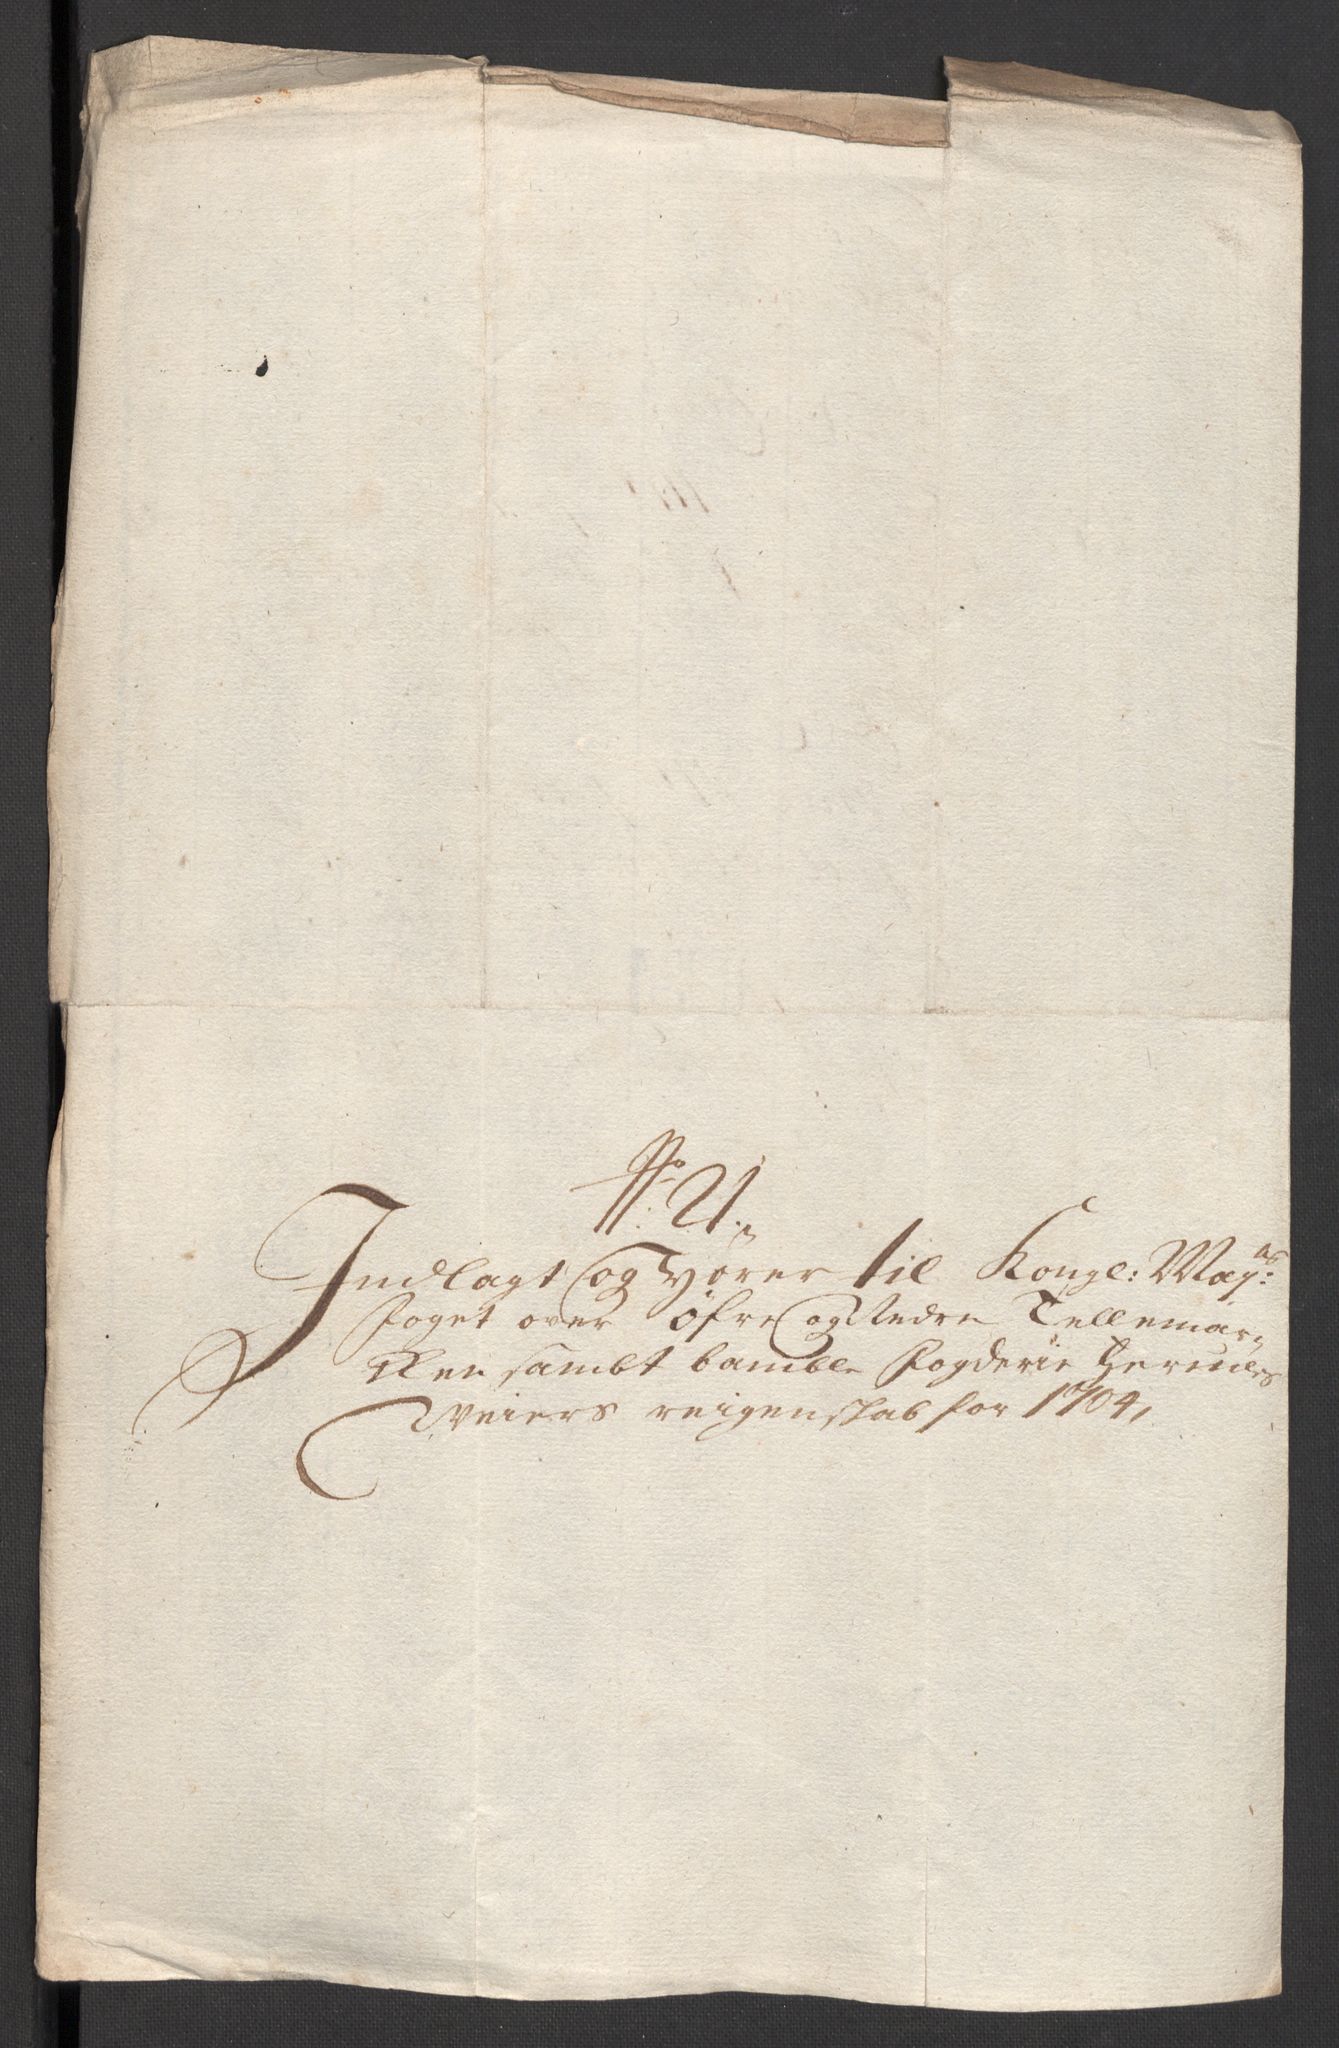 No: 21.
Indlagt og hörer til Kongl: May.ts
foget over öfre og Nedre Tellemar,
Ken sambt bamble fogderie Hermen
Weiers reigenskab for 1704,